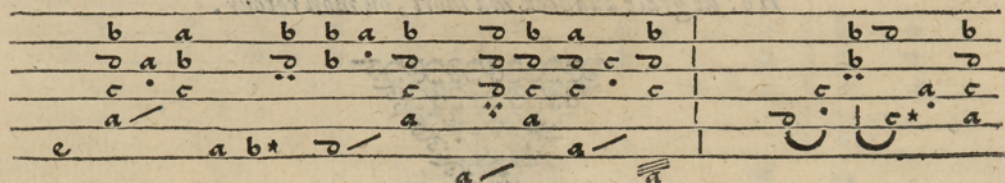 b a b b a b d b a b b d b
d a b d b d d d d c d b d
c c c d c c c c a c
a a a d c* a
e a b* d a
a a